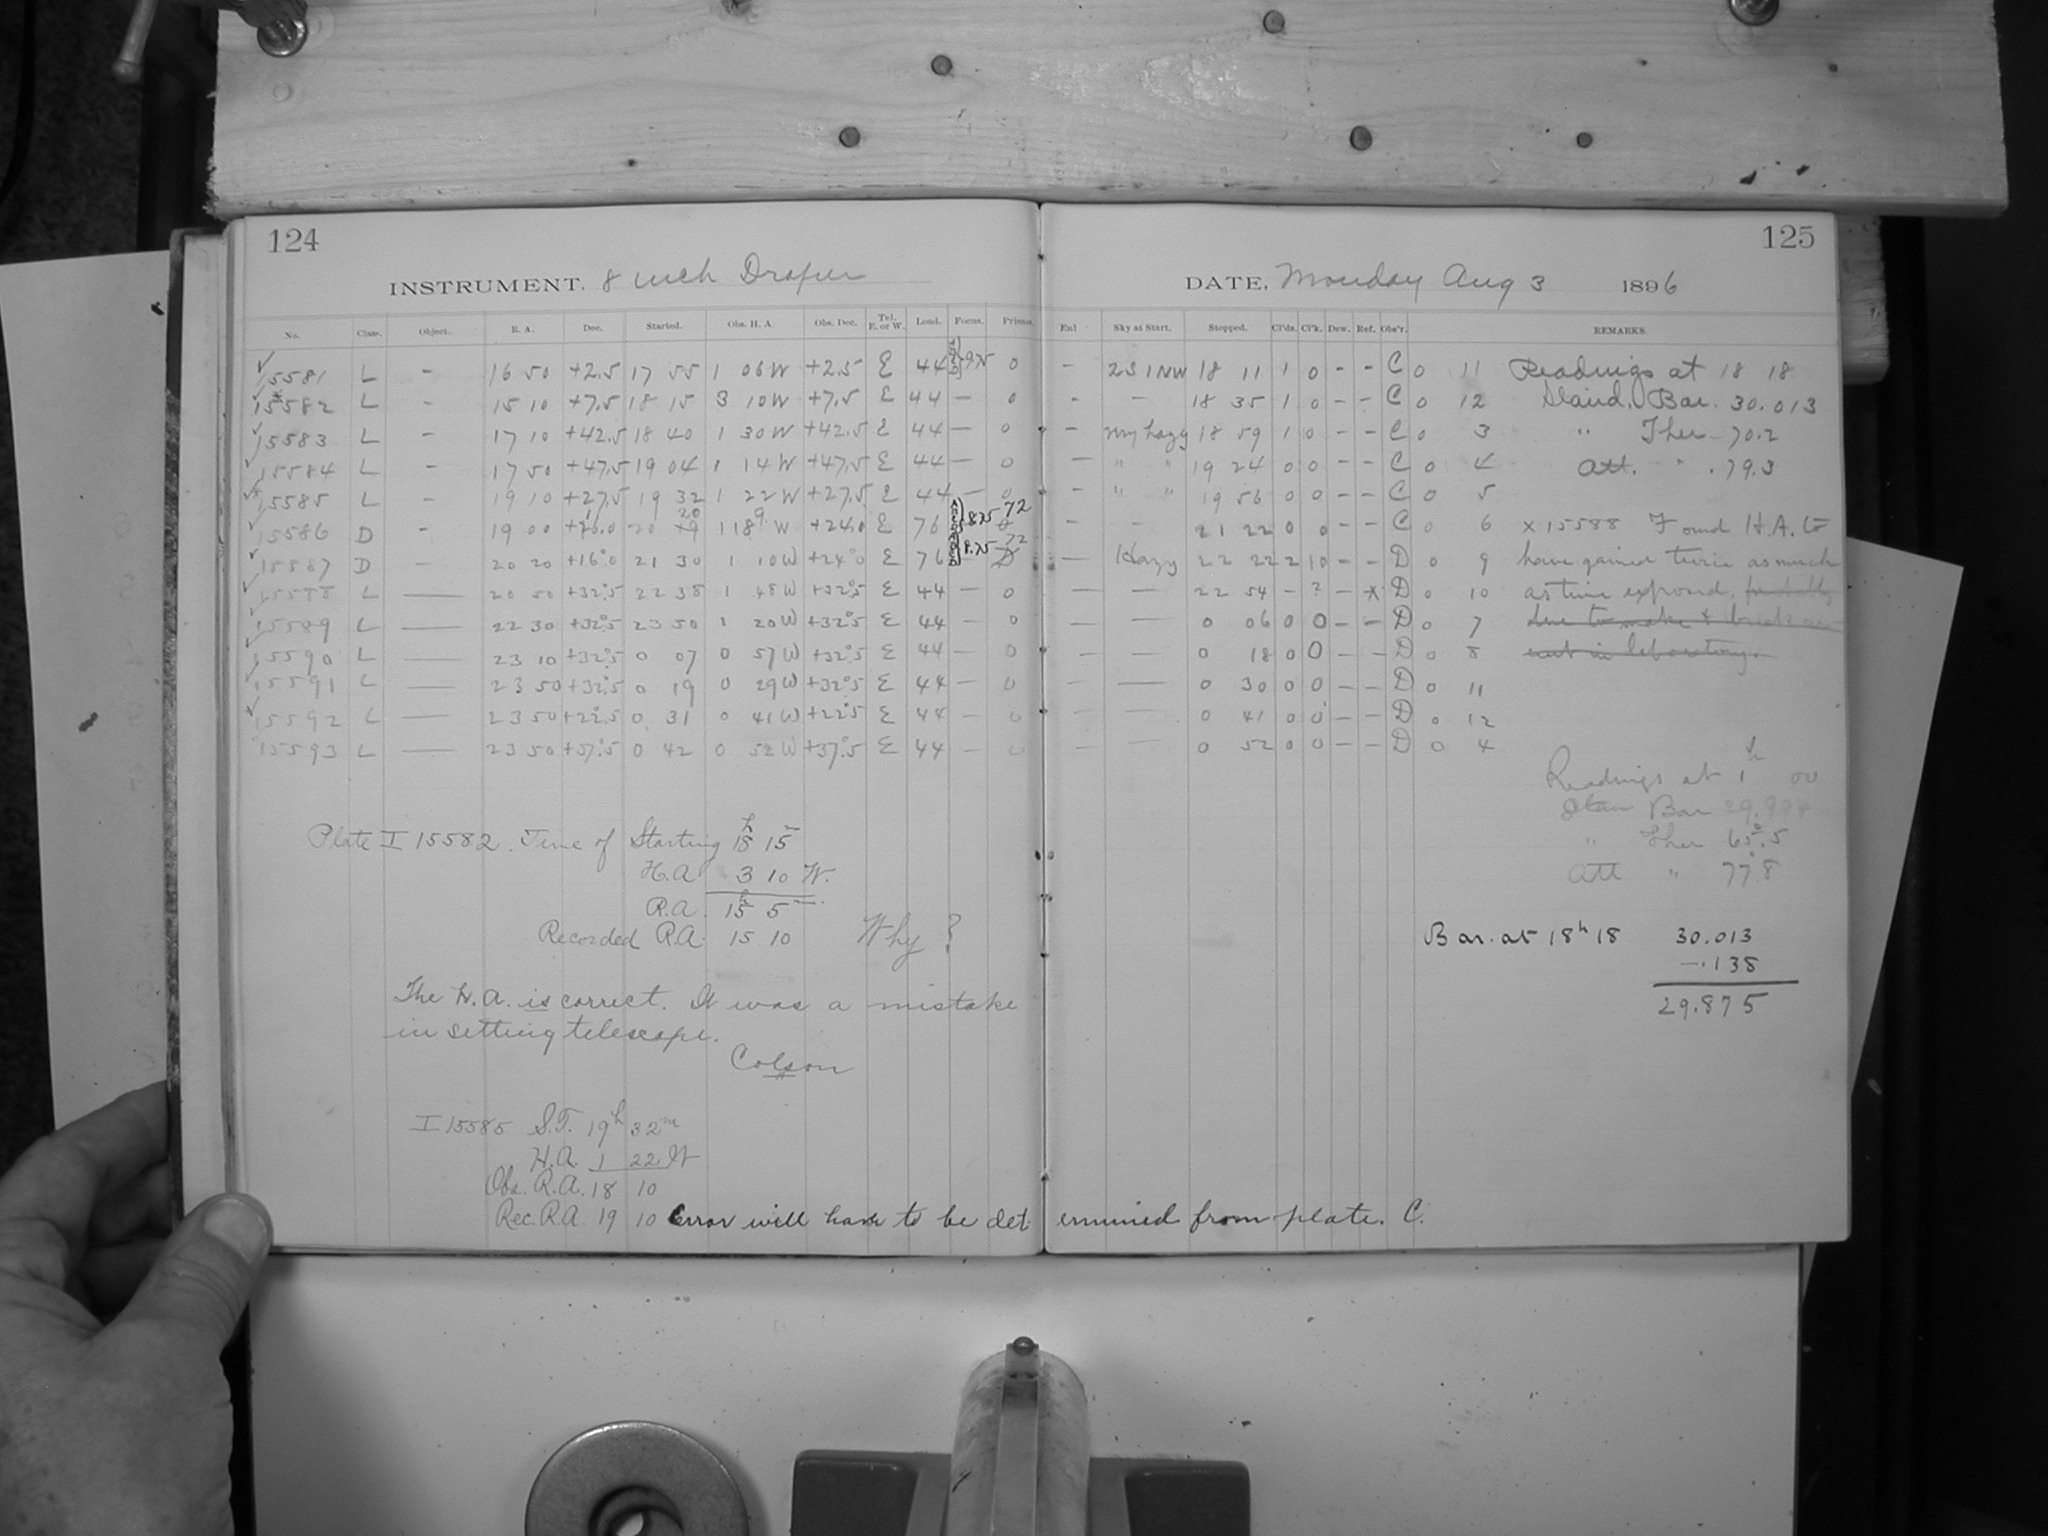 124
125
INSTRUMENT. 8 inch Draper
DATE, Monday Aug 3 1896
No. Class. Object. R. A. Dec. Started. Obs. H. A. Obs. Dec. Tel. E. or W. Load. Focus. Prisms. Enl Sky at Start. Stopped. Cl'ds. Cl'k. Dew. Ref. Obs'r. REMARKS.
15581 L - 16 50 +2.5 17 55 1 06 W +2.5 E 44 9.75 0 - 18 11 1 0 - - C 0 11 Readings at 18 18
15582 L - 15 10 +7.5 18 15 3 10 W +7.5 E 44 - 0 - - 18 35 1 0 - - C 0 12 Stand. Bar. 30.013
15583 L - 17 10 +42.5 18 40 1 30 W +42.5 E 44 - 0 - very hazy 18 59 1 0 - - C 0 3 " Ther 70.2
15584 L - 17 50 +47.5 19 04 1 14 W +47.5 E 44 - 0 - " " 19 24 0 0 - - C 0 4 Att. " 79.3
15585 L - 19 10 +27.5 19 32 1 22 W +27.5 E 44 - 0 - " " 19 56 0 0 - - C 0 5
15586 D - 19 00 20 1 18 W +24.0 E 76 8.75 72 - - 21 22 0 0 - - C 0 6 x 15588 Found H.A. to
15587 D - 20 20 +16°0 21 30 1 10 W +24°0 E 76 8.75 72 - Hazy 22 22 2 10 - - D 0 9 have gained twice as much
15588 L - 20 50 +32°5 22 38 1 48 W +32°5 E 44 - 0 - - 22 54 - ? - x D 0 10 as time exposed, probably
15589 L - 22 30 +32°5 23 50 1 20 W +32°5 E 44 - 0 - - 0 06 0 0 - - D 0 7 due to make & break
15590 L - 23 10 +32°5 0 07 0 57 W +32°5 E 44 - 0 - - 0 18 0 0 - - D 0 8 in laboratory.
15591 L - 23 50 +32°5 0 19 0 29 W +32°5 E 44 - 0 - - 0 30 0 0 - - D 0 11
15592 L - 23 50 +22°5 0 31 0 41 W +22°5 E 44 - 0 - - 0 41 0 0 - - D 0 12
15593 L - 23 50 +37°5 0 42 0 52 W +37°5 E 44 - 0 - - 0 52 0 0 - - D 0 4
Readings at 1h 00
Stan Bar 29.994
" Ther 65°.5
Att " 77°.8
Plate I 15582. Time of Starting 18h 15m
H.A. 3 10 W.
R.A. 15h 5m
Recorded R.A. 15 10 Why?
Bar. at 18h 18 30.013
-.138
29.875
The H.A. is correct. It was a mistake
in setting telescope.
Colson
I 15585 S.T. 19h 32m
H.A. 1 22 W
Obs. R.A. 18 10
Rec. R.A. 19 10 Error will have to be determined from plate. C.